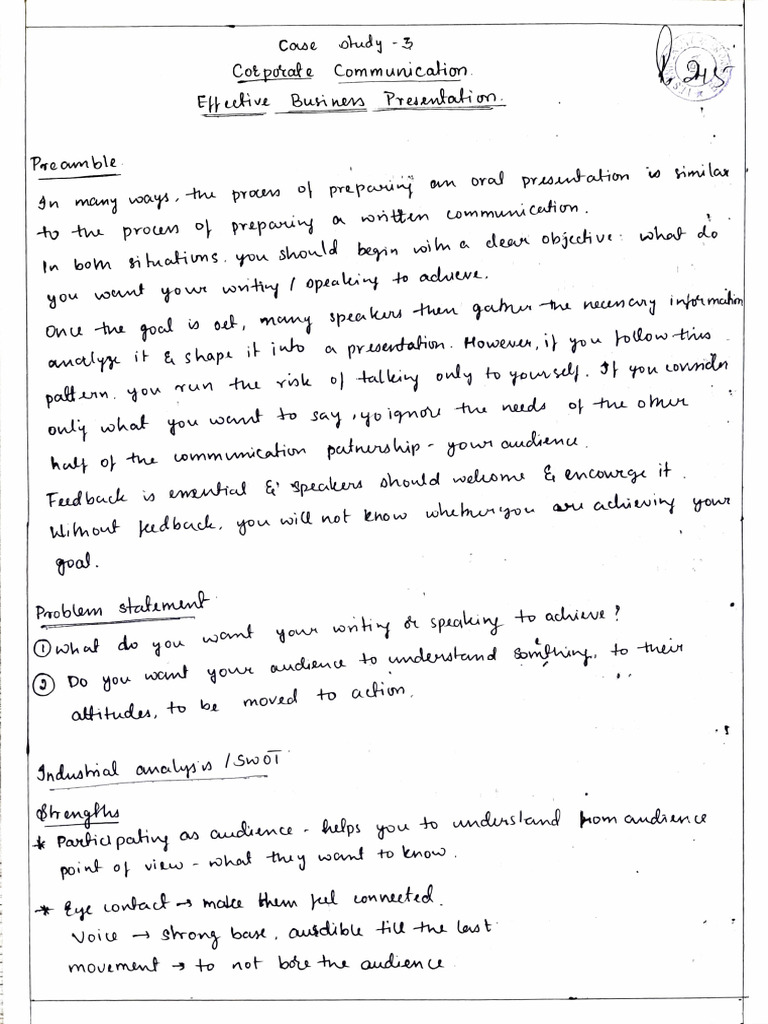 Case study - 3
Corporate Communication.
Effective Business Presentation.
245
Preamble
In many ways, the process of preparing an oral presentation is similar
to the process of preparing a written communication.
In both situations. you should begin with a clear objective: what do
you want your writing / speaking to achieve.
Once the goal is set, many speakers then gather the necessary information
analyze it & shape it into a presentation. However, if you follow this
pattern. you run the risk of talking only to yourself. If you consider
only what you want to say, yo ignore the needs of the other
half of the communication patnership - your audience.
Feedback is essential & speakers should welcome & encourge it.
Without feedback, you will not know whether you are achieving your
goal.
Problem statement
① What do you want your writing or speaking to achieve?
② Do you want your audience to understand something, to their
attitudes, to be moved to action.
Industrial analysis / SWOT
Strengths
* Participating as audience - helps you to understand from audience
point of view - what they want to know.
* Eye contact → make them feel connected.
Voice → strong base, ausdible till the last
movement → to not bore the audience.